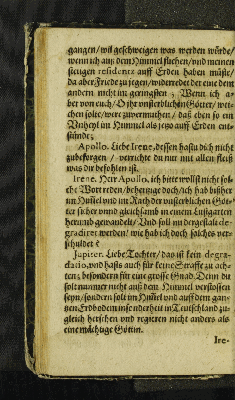 gangen/ wil geschweigen was werden würde/
wenn ich auß dem Himmel fliehen/ und meinen
stetigen residentz auff Erden haben müste/
da aber Friede zu segen/ widerredet der eine dem
andern nicht im geringsten; Wenn ich a-
ber von euch/ O ihr vnsterblichen Götter/ wei-
chen solte/ were zuvermuthen/ daß eben so ein
Vnheyl im Himmel als jetzo auff Erden ent-
stünde;
Apollo. Liebe Irene, dessen hastu dich nicht
zubesorgen/ verrichte du nur mit allen fleiß
was dir befohlen ist.
Irene. Herr Apollo, ich bitte wollst nicht sol-
che Wort reden/ beherzige doch/ ich hab bißher
im Himel und im Rath der vnsterblichen Göt-
ter sicher vnnd gleichsamb in einem Lustgarten
herumb gewandelt/ Vnd soll nu dergestalt de-
gradiret werden/ wie hab ich doch solches ver-
schuldet?
Jupiter. Liebe Tochter/ das ist kein degra-
datio, vnd hasts auch für keine Straffe zu ach-
ten; besondern für eine grosse Gnad/ Denn du
solt nunmer nicht auß dem Himmel verstossen
seyn/ sondern solt im Himel und auff dem gan-
zen Erdboden insonderheit in Teutschland zu-
gleich herschen und regieren nicht anders als
eine mächtige Göttin.
Ire-